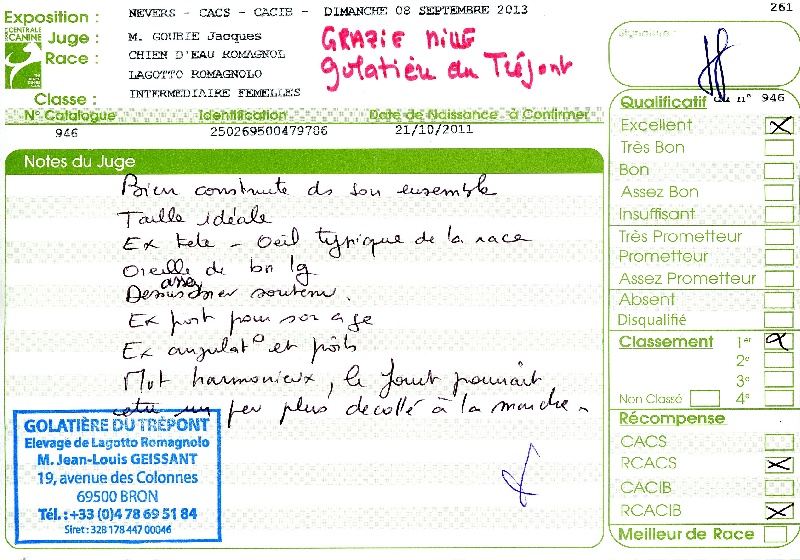 Exposition : NEVERS - CACS - CACIB - DIMANCHE 08 SEPTEMBRE 2013
261
CENTRALE CANINE
Juge : M. GOUBIE Jacques
Race : CHIEN D'EAU ROMAGNOL
LAGOTTO ROMAGNOLO
Classe : INTERMEDIAIRE FEMELLES
GRAZIE MILLE
golatière du Trépont
Signature :
N° Catalogue Identification Date de Naissance à Confirmer
946 250269500479786 21/10/2011
Notes du Juge
Bien construite ds son ensemble
Taille idéale
Ex tete - Oeil typique de la race
Oreille de bn lg
assez
Dessus soutenu.
Ex port pour son age
Ex angulat° et
Mvt harmonieux, le fouet pourrait
etre un peu plus décollé à la marche.
GOLATIÈRE DU TRÉPONT
Elevage de Lagotto Romagnolo
M. Jean-Louis GEISSANT
19, avenue des Colonnes
69500 BRON
Tél. : +33 (0)4 78 69 51 84
Siret : 328 178 447 00046
Qualificatif du n° 946
Excellent X
Très Bon
Bon
Assez Bon
Insuffisant
Très Prometteur
Prometteur
Assez Prometteur
Absent
Disqualifié
Classement 1er
2e
3e
Non Classé 4e
Récompense
CACS
RCACS X
CACIB
RCACIB X
Meilleur de Race